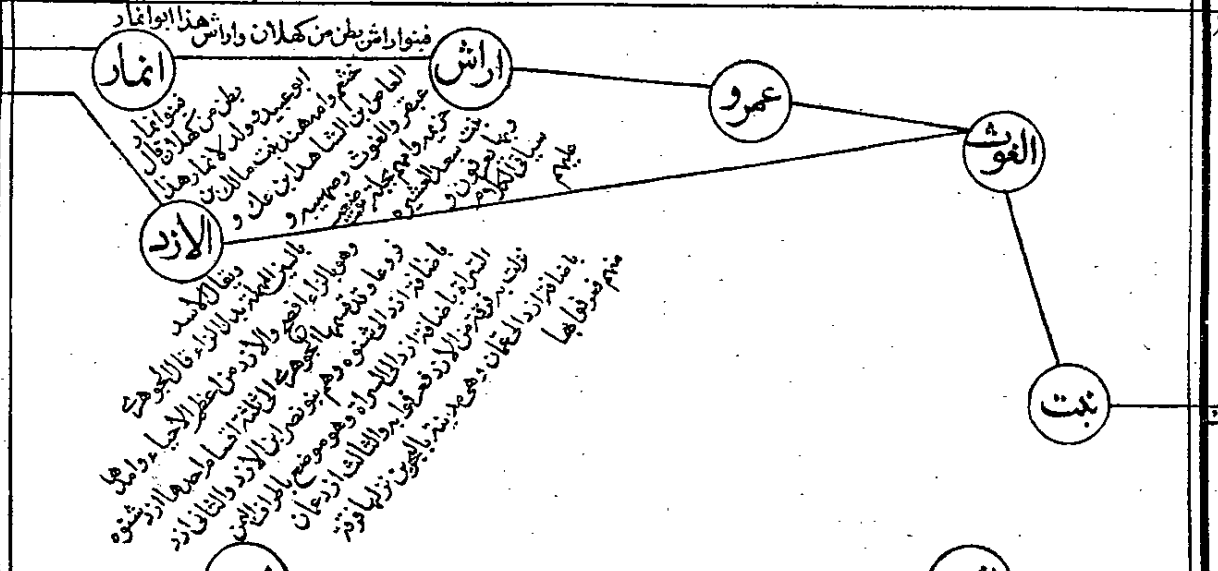 فبنواراش بطن من كهلان واراش هذا ابوانمار
انمار
اراش
عمرو
الغوث
الازد
نبت
فبنوانمار
بطن من كهلان قال
ابوعبيد وولد لانمار هذا
خثعم وامه هند بنت مالك بن
الغافق بن الشاهد بن عك و
عبقر والغوث وصهيبه و
خزيمه وامهم بجيلة
بنت سعد العشيره
وبها يعرفون و
سياتى الكلام
عليهم
ويقال الاسد
بالسين المهملة بدل الزاء قال الجوهرى
وهو بالزاء افصح والازد من اعظم الاحياء وامدها
فروعا وقد قسمها الجوهرى الى ثلثة اقسام احدها ازد شنوه
باضافة ازد الى شنوه وهم بنو نصر ابن الازد والثانى ازد
السراة باضافة ازد الى السراة وهو موضع باطراف اليمن
نزلت به فرقة من الازد فعرفوا به والثالث ازد عمان
باضافة ازد الى عمان وهى مدينة بالبحرين نزلها فرقة
منهم فعرفوا بها